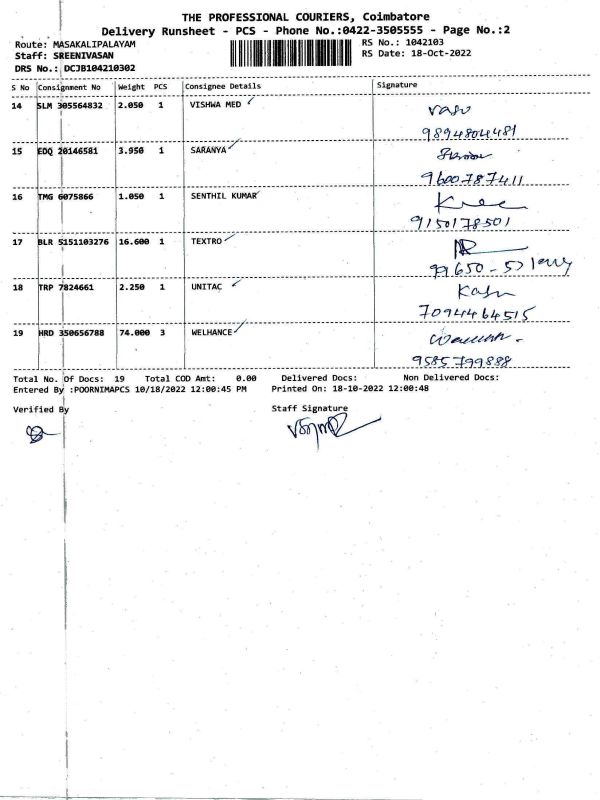 THE PROFESSIONAL COURIERS, Coimbatore
Delivery Runsheet - PCS - Phone No.:0422-3505555 - Page No.:2
Route: MASAKALIPALAYAM RS No.: 1042103
Staff: SREENIVASAN RS Date: 18-Oct-2022
DRS No.: DCJB104210302
S No Consignment No Weight PCS Consignee Details Signature
14 SLM 305564832 2.050 1 VISHWA MED
vasu
9894804481
15 EDQ 20146581 3.950 1 SARANYA
9600787411
16 TMG 6075866 1.050 1 SENTHIL KUMAR
9150178501
17 BLR 5151103276 16.600 1 TEXTRO
99650
18 TRP 7824661 2.250 1 UNITAC
7094464515
19 HRD 350656788 74.000 3 WELHANCE
9585799888
Total No. Of Docs: 19 Total COD Amt: 0.00 Delivered Docs: Non Delivered Docs:
Entered By :POORNIMAPCS 10/18/2022 12:00:45 PM Printed On: 18-10-2022 12:00:48
Verified By Staff Signature